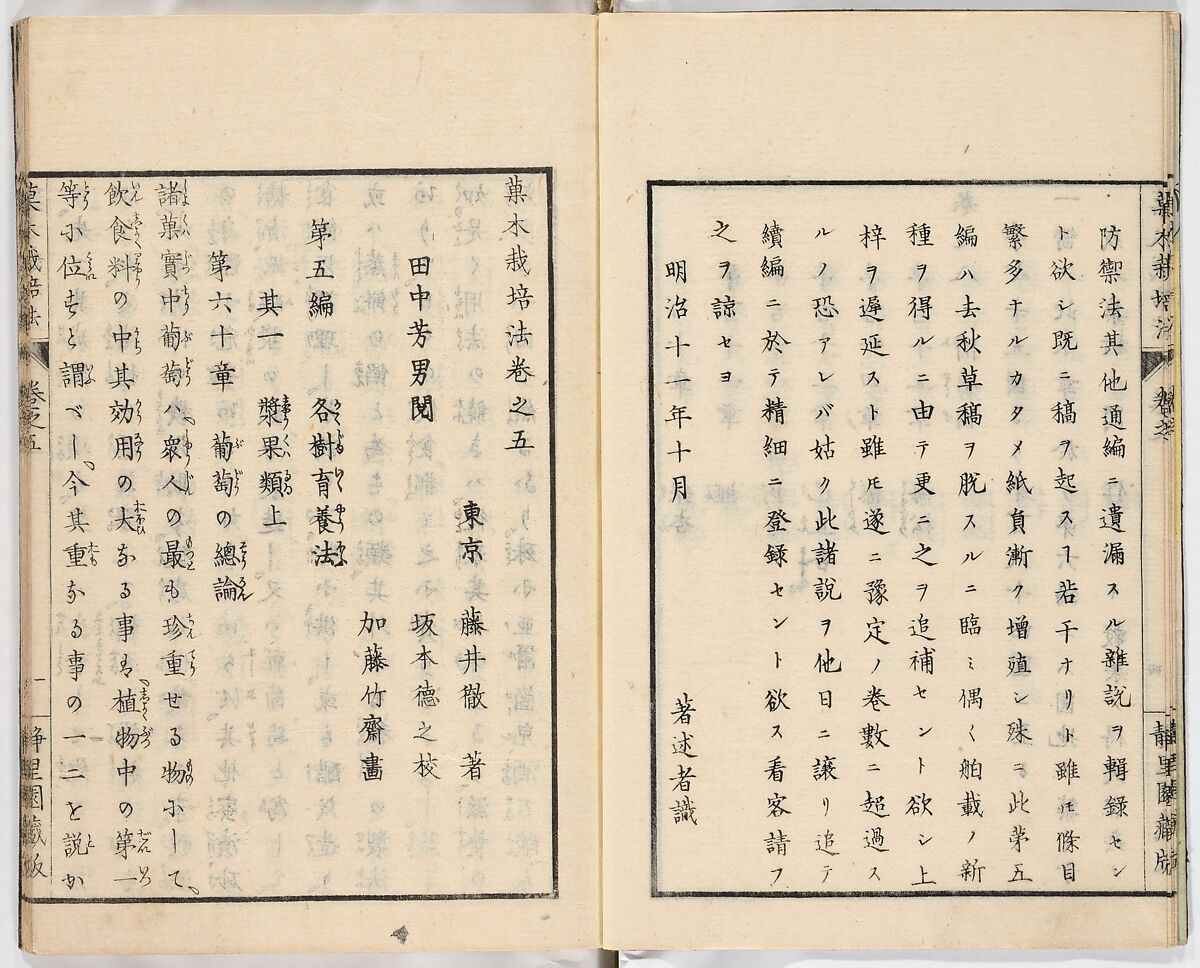 防禦法其他通編ニ遺漏スル雜說ヲ輯録セン
ト欲シ既ニ稿ヲ起スヿ若干ナリト雖𪜈條目
繁多ナルカタメ紙負漸ク增殖シ殊ニ此第五
編ハ去秋草稿ヲ脱スルニ臨ミ偶〻舶載ノ新
種ヲ得ルニ由テ更ニ之ヲ追補セント欲シ上
梓ヲ遲延スト雖𪜈遂ニ豫定ノ卷數ニ超過ス
ルノ恐アレバ姑ク此諸說ヲ他日ニ讓リ追テ
續編ニ於テ精細ニ登録セント欲ス看客請フ
之ヲ諒セヨ
明治十一年十月
著述者識
菓木栽培法卷之五
東京 藤井徹 著
田中芳男閱 坂本德之校
加藤竹齋畵
第五編 各樹育養法
其一 漿果類上
第六十章 葡萄の總論
諸菓實中葡萄ハ、衆人の最も珍重せる物にして、
飲食料の中其効用の大なる事は、植物中の第一
等に位すと謂べし、今其重なる事の一二を説か
菓木栽培法 卷之五 一 靜里園藏版